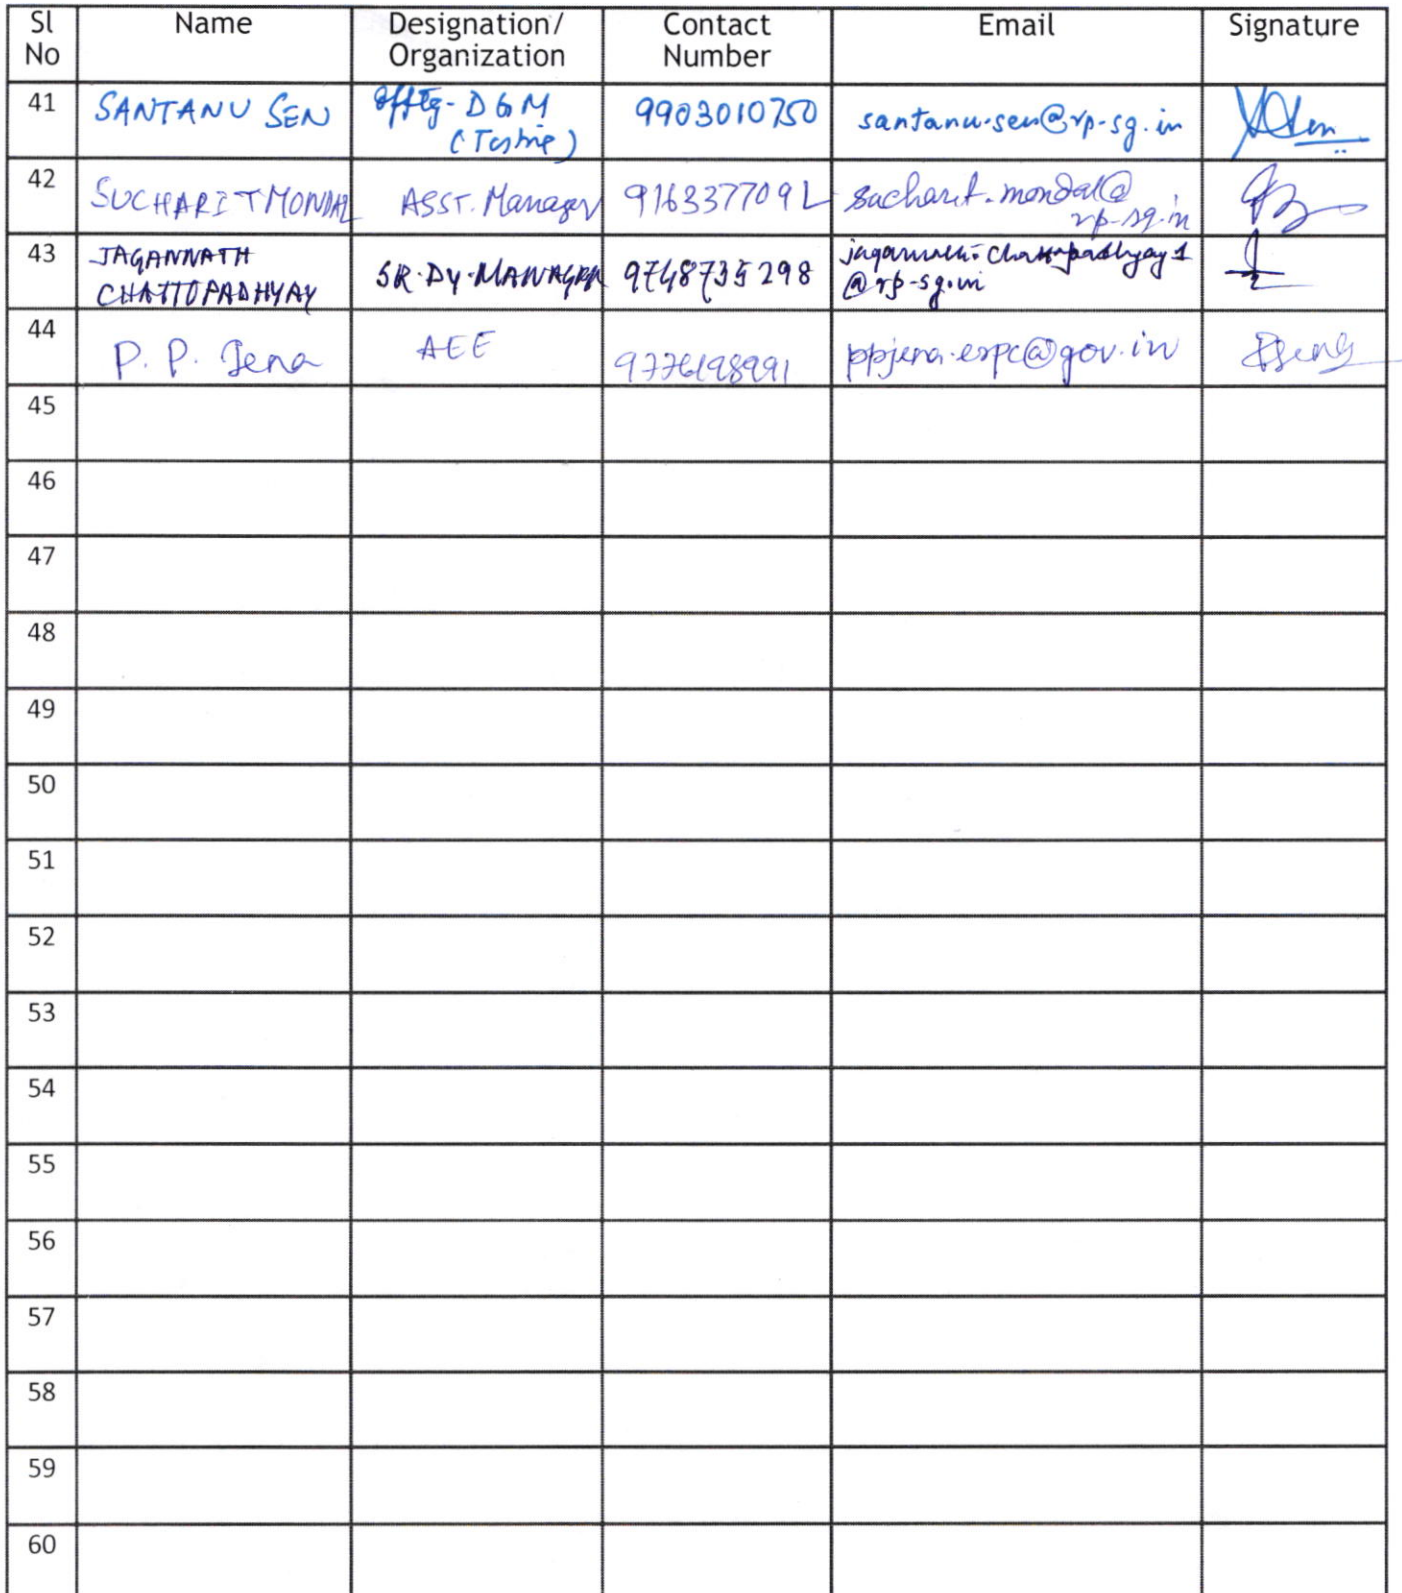 Sl No Name Designation/ Organization Contact Number Email Signature
41 SANTANU SEN Offtg- DGM (Testing) 9903010750 santanu.sen@rp-sg.in
42 SUCHARIT MONDAL ASST. Manager 916337709 sucharit.mondal@ rp-sg.in
43 JAGANNATH CHATTOPADHYAY SR. Dy. MANAGER 9748735298 jagannath.chattopadhyay1 @rp-sg.in
44 P. P. Jena AEE 9776198991 ppjena.erpc@gov.in
45
46
47
48
49
50
51
52
53
54
55
56
57
58
59
60